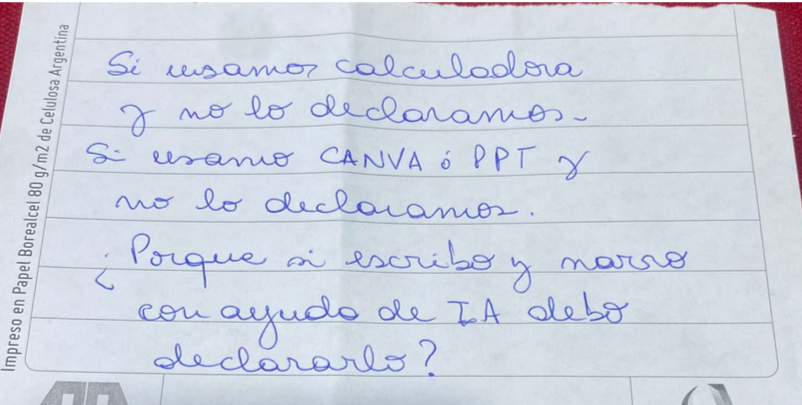 Impreso en Papel Borealcel 80 g/m2 de Celulosa Argentina
Si usamos calculadora
y no lo declaramos.
Si usamo CANVA ó PPT y
no lo declaramos.
¿Porque si escribo y narro
con ayuda de IA debo
declararlo?